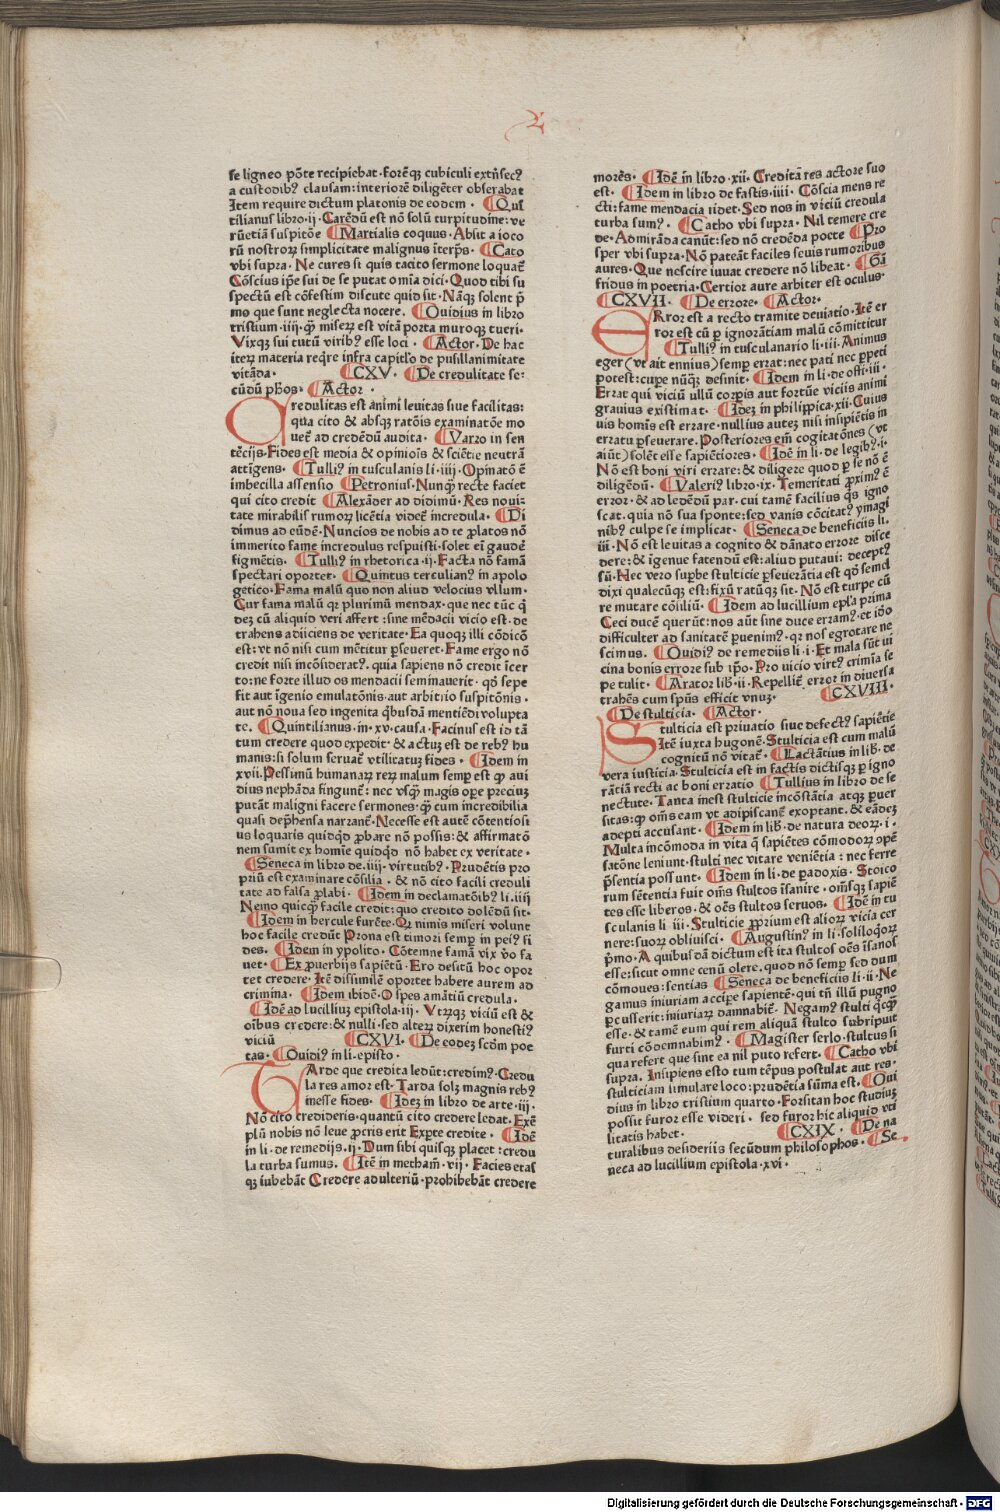 se ligneo põte recipiebat·forẽqꝫ cubiculi extn̄secꝰ
a custodibꝰ clausam:interiorẽ diligẽter obserabat
Item require dictum platonis de eodem · ¶Quī
tilianus libro·ij·Carẽdū est nō solū turpitudine:ve
rūetiā suspitõe ¶Martialis coquus·Absit a ioco
rū nostroꝝ simplicitate malignus īterp̄s· ¶Cato
vbi supra·Ne cures si quis tacito sermone loquat᷑
Cōscius ip̄e sui de se putat om̄ia dici·Quod tibi su
spectū est cōfestim discute quid sit·Nāqꝫ solent p̄
mo que sunt neglecta nocere. ¶Ouidius in libro
tristium·iiij·ꝙ miseꝝ est vitā porta muroqꝫ tueri·
Vixqꝫ sui tutū viribꝰ esse loci · ¶Actor·De hac
iteꝝ materia reqͥre infra capitl̓o de pusillanimitate
vitāda· ¶CXV· ¶De credulitate se:
cūdū pħos·¶Actor·
Credulitas est animi leuitas siue facilitas:
qua cito & absqꝫ ratōis examinatōe mo
uet᷑ ad credēdū audita· ¶Varro in sen
tēcijs·Fides est media & opiniōis & sciētie neutrā
attīgens· ¶Tulliꝰ in tusculanis li·iiij·Opinatō ē
imbecilla assensio ¶Petronius·Nunqͣꝫ recte faciet
qui cito credit ¶Alexāder ad didimū·Res noui:
tate mirabilis rumoꝝ licētia videt᷑ incredula· ¶Di
dimus ad eūdē·Nuncios de nobis ad te ꝑlatos nō
immerito fame incredulus respuisti·solet eī gaudē
figmētis· ¶Tulliꝰ in rhetorica·ij·Facta nō famā
spectari oportet· ¶Quintus terculianꝰ in apolo
getico·Fama malū quo non aliud velocius vllum·
Cur fama malū qꝫ plurimū mendax·que nec tūc q̄
dez cū aliquid veri affert:sine mēdacii vicio est·de
trahens adiiciens de veritate·Ea quoqꝫ illi cōdicō
est:vt nō nisi cum mētitur ꝑseueret·Fame ergo nō
credit nisi incōsideratꝰ·quia sapiens nō credit īcer
to:ne forte illud os mendacii seminauerit·qd̓ sepe
fit aut īgenio emulatōnis·aut arbitrio suspitōnis·
aut nō noua sed ingenita qͥbusdā mentiēdi volupta
te·¶Quintilianus·in·xv·causa·Facinus est id tā
tum credere quod expedit·& actus est de rebꝰ hu
manis:si solum seruat᷑ vtilitatuꝫ fides · ¶Idem in
xvii·Pessimū humanaꝝ reꝝ malum semꝑ est ꝙ aui
dius nephāda finguñt:nec vsqͣꝫ magis oꝑe precium
putāt maligni facere sermones:ꝙ̄ cum incredibilia
quasi dep̄hensa narrant᷑·Necesse est autē cōtentiosi
us loquaris quidqͥd ꝓbare nō possis:& affirmatō
nem sumit ex homīe quidqͥd nō habet ex veritate ·
¶Seneca in libro de·iiij·virtutibꝰ·Prudētis pro
priū est examinare cōsilia·& nō cito facili creduli
tate ad falsa ꝓlabi· ¶Idem in declamatōibꝰ li·iiij
Nemo quicqͣꝫ facile credit:quo credito dolēdū sit·
¶Idem in hercule furēte·Qͥ nimis miseri volunt
hoc facile credūt Prona est timori semꝑ in peiꝰ fi
des· ¶Idem in ypolito·Cōtemne famā vix v̓o fa
uet· ¶Ex ꝓuerbijs sapiētū·Ero desitū hoc opor
tet credere·Itē dissimilē oportet habere aurem ad
crimina· ¶Idem ibidē·O spes amātiū credula·
¶Idē ad lucillium epistola·iij·Vtꝝqꝫ viciū est &
oībus credere:& nulli·sed alteꝝ dixerim honestiꝰ
viciū ¶CXVI· ¶De eodez scd̓m poe
tas·¶Ouidiꝰ in li·episto·
TArde que credita ledūt:credimꝰ·Credu
la res amor est·Tarda solꝫ magnis rebꝰ
inesse fides· ¶Idez in libro de arte·iij·
Nō cito credideris·quantū cito credere ledat·Exē
plū nobis nō leue ꝓcris erit Exꝑte credite · ¶Idē
in li·de remedijs·ij·Dum sibi quisqꝫ placet:credu
la turba sumus. ¶Itē in metham̄·vij·Facies etas
qꝫ iubebāt Credere adulteriū·prohibebāt credere
mores· ¶Idē in libro·xii·Creditā res actore suo
est· ¶Idem in libro de fastis·iiii·Cōscia mens re
cti:fame mendacia ridet·Sed nos in viciū credula
turba sumꝰ· ¶Catho vbi supra·Nil temere cre
de·Admirāda canūt:sed nō credēda poete ¶Pro
sper vbi supra·Nō pateāt faciles seuis rumoribus
aures·Que nescire iuuat credere nō libeat·¶Gā
fridus in poetria·Certior aure arbiter est oculus·
¶CXVII· ¶De errore· ¶Actor·
ERror est a recto tramite deuiatio·Itē er
ror est cū ꝑ ignorātiam malū cōmittitur
¶Tulliꝰ in tusculanario li·iii·Animus
eger (vt ait ennius) semꝑ errat:nec pati nec ꝑpeti
potest:cupe nūqͣꝫ definit· ¶Idem in li·de offi·iii·
Errat qui viciū ullū corꝑis aut fortūe viciis animi
grauius existimat· ¶Idez in philippica·xii·Cuius
uis homīs est errare·nullius auteꝫ nisi insipiētis in
erratu ꝑseuerare·Posteriores em̄ cogitatōnes (vt
aiūt) solēt esse sapiētiores· ¶Idē in li·de legibꝰ·i·
Nō est boni viri errare:& diligere quod ꝑ se nō ē
diligēdū· ¶Valeriꝰ libro·ix·Temeritati ꝓximꝰ ē
error·& ad ledēdū par·cui tamē facilius qͥs igno
scat·quia nō sua sponte:sed vanis cōcitatꝰ ymagi
nibꝰ culpe se implicat· ¶Seneca de beneficiis li·
iii·Nō est leuitas a cognito & dānato errore disce
dere:& igenue fatendū est:aliud putaui:deceptꝰ
sū·Hec vero suꝑbe stulticie ꝑseuerātia est:qd̓ semel
dixi qualecūqꝫ est:fixū ratūqꝫ sit·Nō est turpe cū
re mutare cōsiliū· ¶Idem ad lucillium epl̓a prima
Ceci ducē querūt:nos aūt sine duce erramꝰ·et idō
difficulter ad sanitatē ꝑuenimꝰ·qr nos egrotare ne
scimus. ¶Ouidiꝰ de remediis li·i·Et mala sūt ui
cina bonis errore sub ip̄o·Pro uicio virtꝰ crimīa se
pe tulit· ¶Arator lib·ii·Repellit᷑ error in diuersa
trahēs cum spūs efficit vnuꝫ· ¶CXVIII·
¶De stulticia· ¶Actor·
Stulticia est priuatio siue defectꝰ sapiētie
Itē iuxta hugonē·Stulticia est cum malū
cognitū nō vitat᷑· ¶Lactātius in lib·de
vera iusticia·Stulticia est in factis dictisqꝫ ꝑ igno
rātiā recti ac boni erratio ¶Tullius in libro de se
nectute·Tanta inest stulticie incōstātia atqꝫ ꝑuer
sitas:ꝙ om̄s eam vt adipiscant᷑ exoptant·& eādeꝫ
adepti accusant· ¶Idem in lib·de natura deoꝝ·i·
Multa incōmoda in vita q̄ sapiētes cōmodoꝝ ꝯpē
satōne leniunt·stulti nec vitare veniētia:nec ferre
p̄sentia possunt· ¶Idem in li·de ꝑadoxis·Stoico
rum sētentia fuit om̄s stultos īsanire·om̄sqꝫ sapiē
tes esse liberos·& oēs stultos seruos. ¶Idē in tu
sculanis li·iii·Stulticie ꝓprium est alioꝝ vicia cer
nere:suoꝝ obliuisci· ¶Augustinꝰ in li·soliloqͥoꝝ
p̄mo·A quibusdā dictum est ita stultos oēs īsanos
esse:sicut omne cenū olere·quod nō semꝑ sed dum
cōmoues:sentias ¶Seneca de beneficiis li·ii·Ne
gamus iniuriam acciꝑe sapientē·qui tn̄ illū pugno
ꝑcusserit:iniuriaꝝ damnabit᷑·Negamꝰ stulti qͥcqͣꝫ
esse·& tamē eum qui rem aliquā stulto subripuit
furti cōdemnabimꝰ· ¶Magister serlo·stultus si
qua refert que sint ea nil puto refert· ¶Catho vbi
supra·Insipiens esto tum tēpus postulat aut res·
stulticiam simulare loco:prudētia sūma est·¶Oui
dius in libro tristium quarto·Forsitan hoc studiuꝫ
possit furor esse videri·sed furor hic aliquid vti
litatis habet· ¶CXIX· ¶De na
turalibus desideriis secūdum philosophos·¶Se·
neca ad lucillium epistola·xvi·
Digitalisierung gefördert durch die Deutsche Forschungsgemeinschaft · DFG